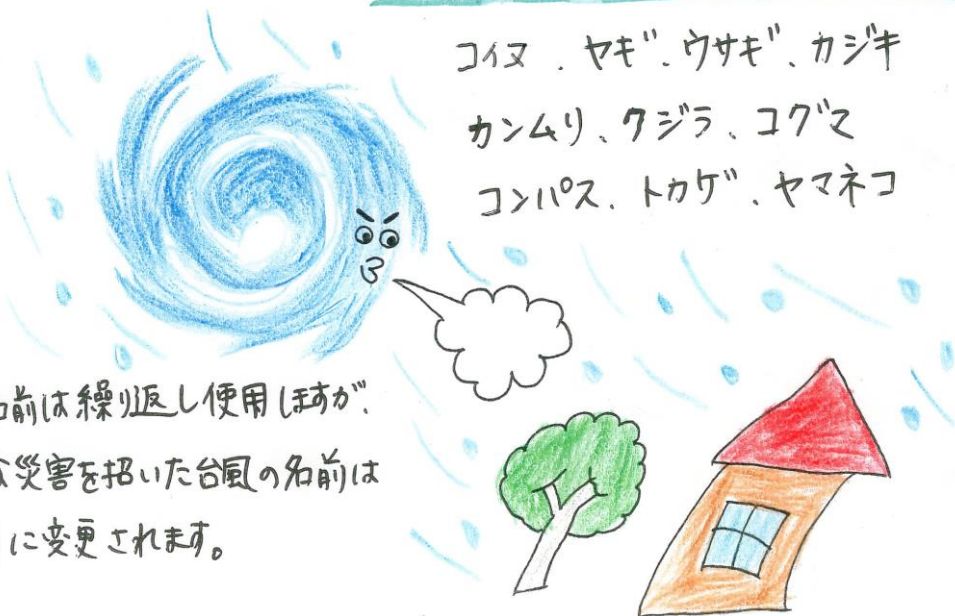 コイヌ、ヤギ、ウサギ、カジキ
カンムリ、クジラ、コグマ
コンパス、トカゲ、ヤマネコ
前は繰り返し使用しますが、
災害を招いた台風の名前は
に変更されます。